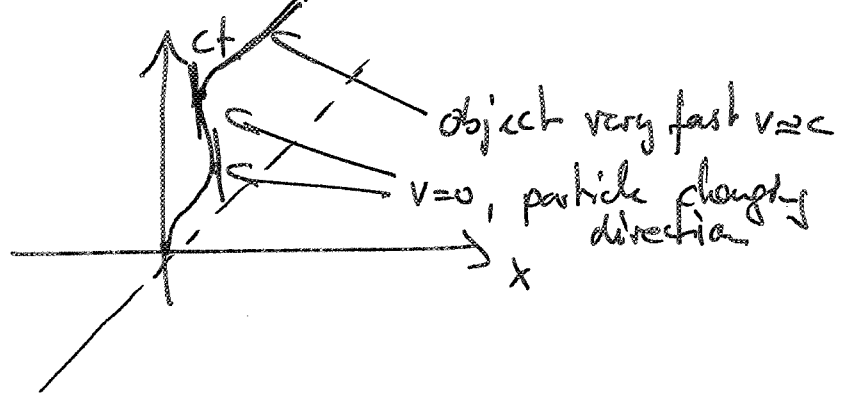 ct
object very fast v≃c
v=0, particle changing
direction
x